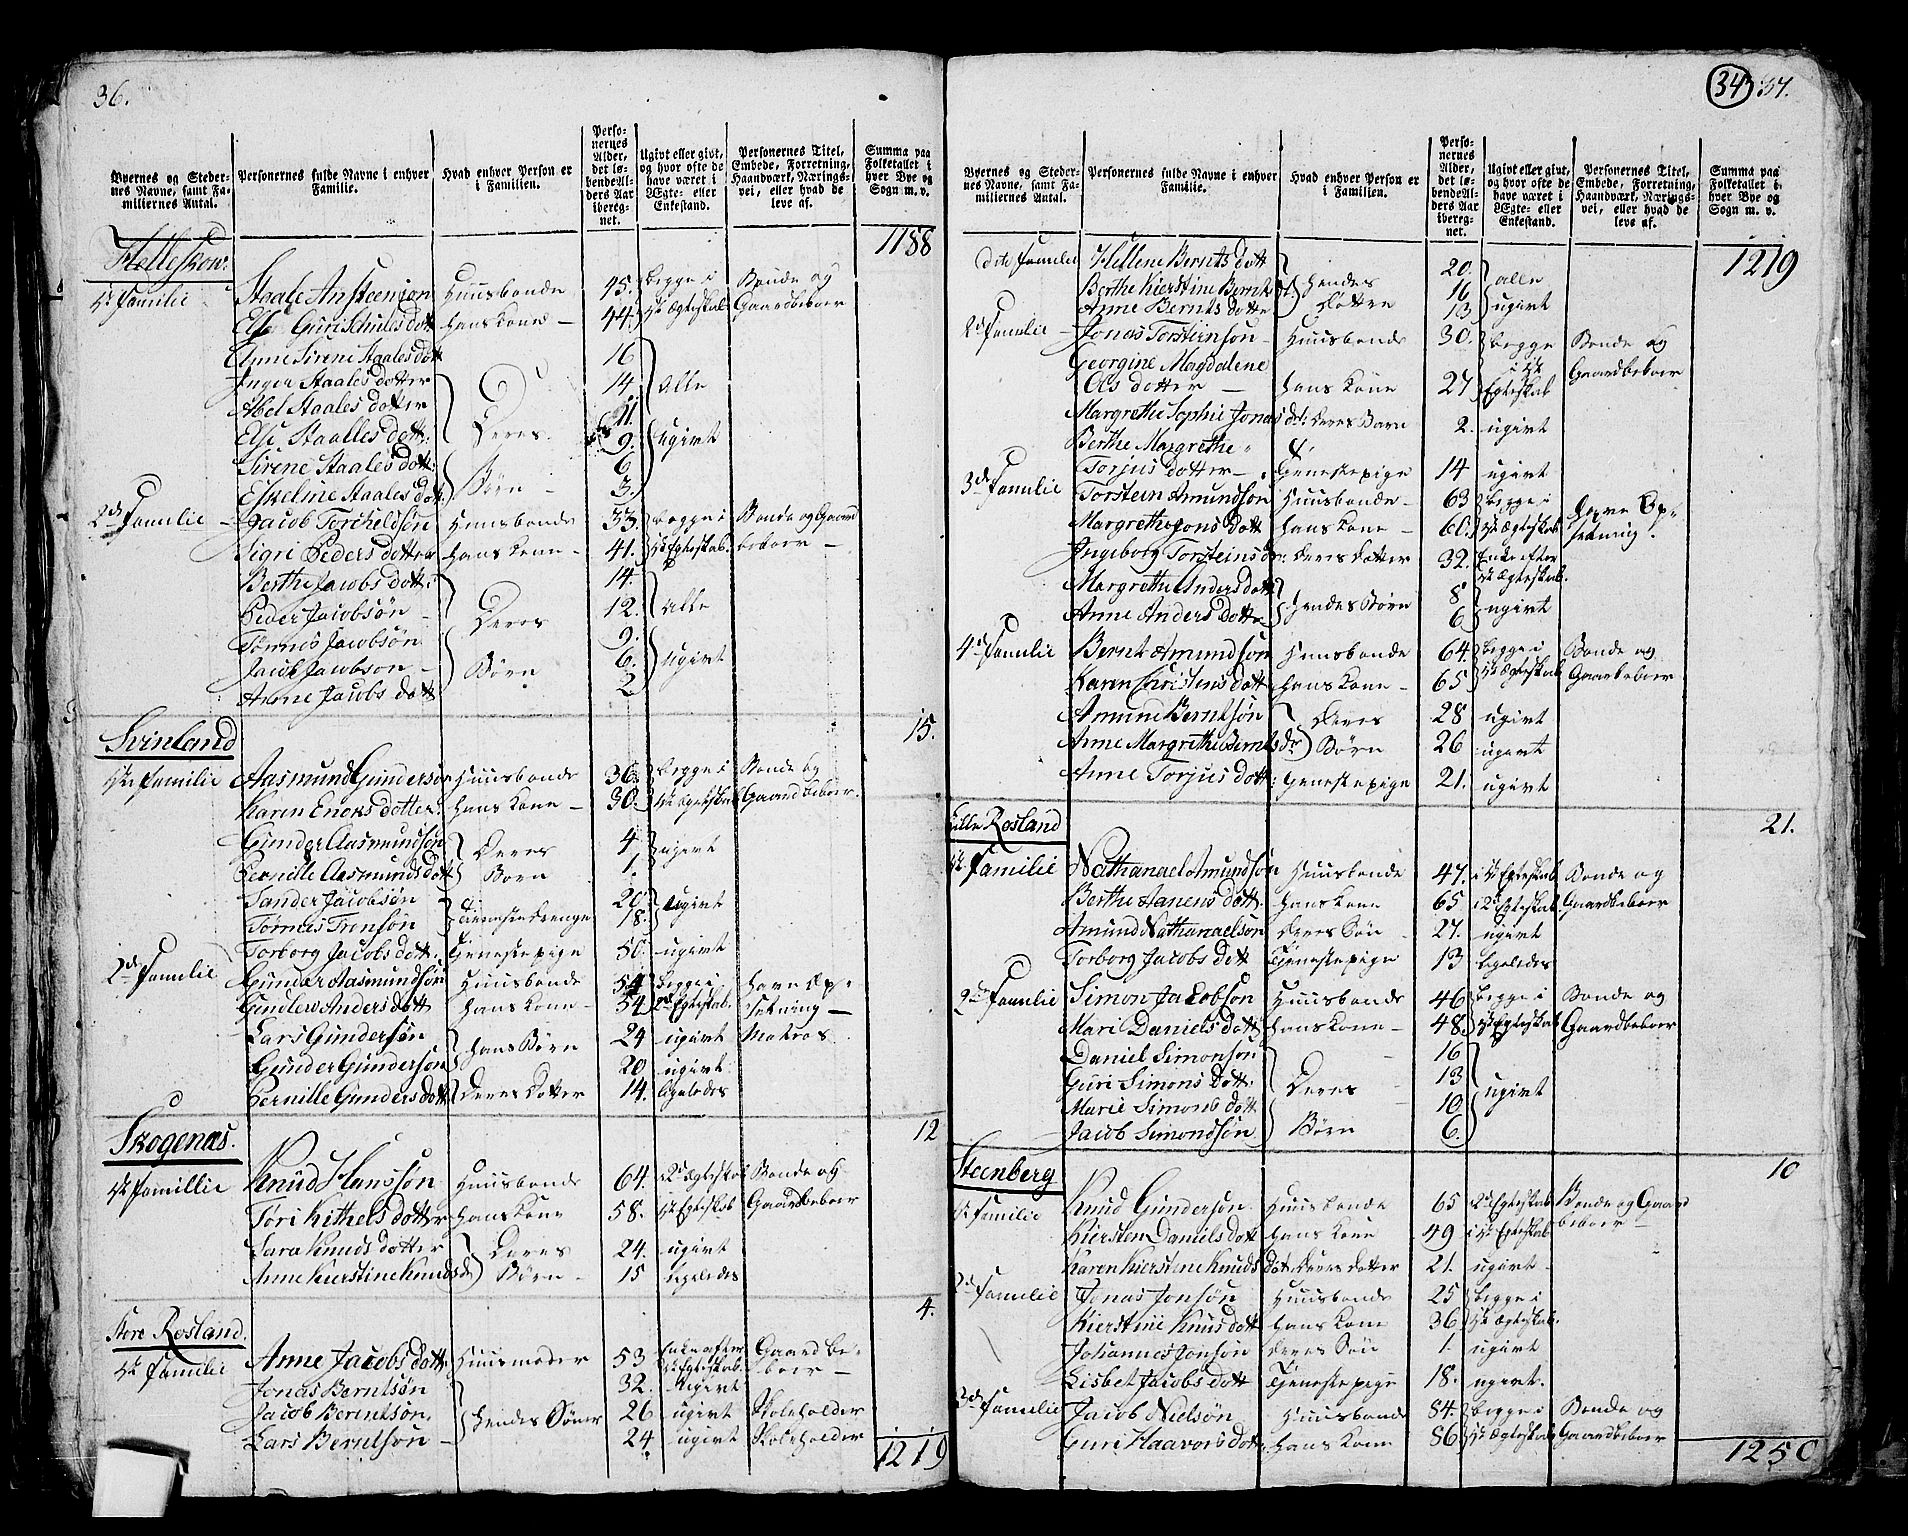 36.
Byernes og Stedernes Navne, samt Familiernes Antal.
Personernes fulde Navne i enhver Familie.
Hvad enhver Person er i Familien.
Personernes Alder, det løbende Alders Aar iberegnet.
Ugivt eller givt, og hvor ofte de have været i Ægte- eller Enkestand.
Personernes Titel, Embede, Forretning, Haandværk, Næringsvei, eller hvad de leve af.
Summa paa Folketallet i hver Bye og Sogn m. v.
1188
Helleskow.
1st Familie Staale Ansteenson Huusbonde 45. begge i Bonde og
Else Guri Schules dott hans Kone 44. 1st Ægteskab Gaardbeboer
Anne Sirene Staales dott 16
Inger Staales dotter 14. Alle
Abel Staales dotter 11.
Else Staalles dott: Deres 9. ugivt
Sirene Staales dott: 6
Eskeline Staales dott. Børn 3.
2d Familie Jacob Torchildsøn Huusbonde 33. begge i Bonde og Gaard
Sigri Peders dotter hans Kone 41. 1st Egteskab. beboer
Berthe Jacobs dott: 14.
Peder Jacobsøn Deres 12. Alle
Tønnis Jacobsøn 9.
Jacob Jacobson Børn 6. ugivt
Anne Jacobs dott 2
15.
Svinland
1st Familie Aasmund Gunderson Huusbonde 36. begge i Bonde og
Karen Enoks dotter hans Kone 30. 1st Egteskab Gaardbeboer.
Gunder Aasmundsøn Deres 4 ugivt
Pernille Aasmunds dott Born 1.
Sander Jacobsøn 20 ugivt
Tønnes Tronsøn Tienestedrenge 18.
Torborg Jacobs dott. Tjenestepige 50. ugivt
2d Familie Gunder Aasmundsøn Huusbonde 54 begge i
Gundlew Anders dott hans Kone 54. 2d Egteskab.
Lars Gundersøn hans Børn 24 ugivt Matros
Gunder Gunderson 20 ugivt
Pernille Gunders dott Deres Dotter 14. ligeledes
12
Skogenæs.
1st Famillie Knud Hanssøn Huusbonde 64. 2d Ægteskab Bonde og
Tøri Kithels dotter hans Kone 58. 1st Egteskab Gaardbeboer
Sara Knuds dotter Deres 24. ugivt
Anne Kierstine Knuds d. Børn 15 ligeledes
4.
Store Rosland.
1st Familie Anne Jacobs dott: Huusmoder 53 Enke after Gaardbe-
1st Egteskab. boer
Jonas Berntsøn 32. Ugivt
Jacob Berentsøn. hendes Søner 26 ugivt Skoleholder
Lars Berntsøn 24 ugivt Skoleholder
1219
34 37.
Byernes og Stedernes Navne, samt Familiernes Antal.
Personernes fulde Navne i enhver Familie.
Hvad enhver Person er i Familien.
Personernes Alder, det løbende Alders Aar iberegnet.
Ugivt eller givt, og hvor ofte de have været i Ægte- eller Enkestand.
Personernes Titel, Embede, Forretning, Haandværk, Næringsvei, eller hvad de leve af.
Summa paa Folketallet i hver Bye og Sogn m. v.
1219
dito Familie Hellene Bernts dott 20.
Berthe Kierstine Bernts dt. hendes 16 alle
Anne Bernts dotter Døttre 13 ugivt
2d Familie Jonas Torsteinsøn Huusbonde 30. begge Bonde og
Georgine Magdalene i 1st Gaardbeboer
Ols dotter hans Kone 27 Egteskab
Margrethe Sophie Jonas dt: Deres Barn 2. ugivt
Berthe Margrethe
Torjus dotter Tjenestepige 14 ugivt
3d Familie Torstein Amundson Huusbonde 63 begge i
Margrethe Jons dott hans Kone 60. 1st Ægteskab
Ingeborg Torsteins dr: Deres Dotter 32. Enke efter
1st Ægteskab.
Margrethe Anders dott 8
Anne Anders dotter hendes Børn 6 ugivt
4d Familie Bernt Amundsøn Huusbonde 64. begge i Bonde og
Karen Christens dott. hans Kone 65 1st Ægteskab Gaardbeboer
Amund Berntsøn Deres 28 ugivt
Anne Margrethe Bernts dr Børn 26 ugivt
Anne Torjus dott: Tjenestepige 21. ugivt
21.
Lille Rosland
1st Familie Nathanael Amundsøn Huusbonde 47. i 1st Egteskab Bonde og
Berthe Hanens dott. hans Kone 65 i 2d Egteskab Gaardbeboer
Amund Nathanaelson Deres Søn 27. ugivt
Torborg Jacobs dott Tjenestepige 13 ligeledes
2d Familie Simon Jacobson Huusbonde 46 begge i Bonde og
Mari Daniels dott hans Kone 48. 1st Egteskab Gaardbeboer
Daniel Simonson 16
Guri Simons dott. Deres 13
Marie Simons dott 10 ugivt
Jacob Simondsøn Børn 6.
10
Steenberg
1st Familie Knud Gundersøn Huusbonde 65 2d Egteskab Bonde og Gaard
Kiersten Daniels dott hans Kone 49 i 1st Egteskab beboer
Karen Kierstine Knuds dott. Deres dotter 21. ugivt
2d Familie Jonas Jonsøn Huusbonde 25 begge i
Kierstine Knuds dott hans Kone 36 1st Ægteskab.
Johannes Jonson Deres Søn 1. ugivt
Lisbet Jacobs dott Tjenestepige 18. ugivt.
3d Familie Jacob Nielsøn Huusbonde 84. begge i Bonde og
Guri Haavors dott: hans Kone 86 1st Ægteskab Gaardbeboer
1250